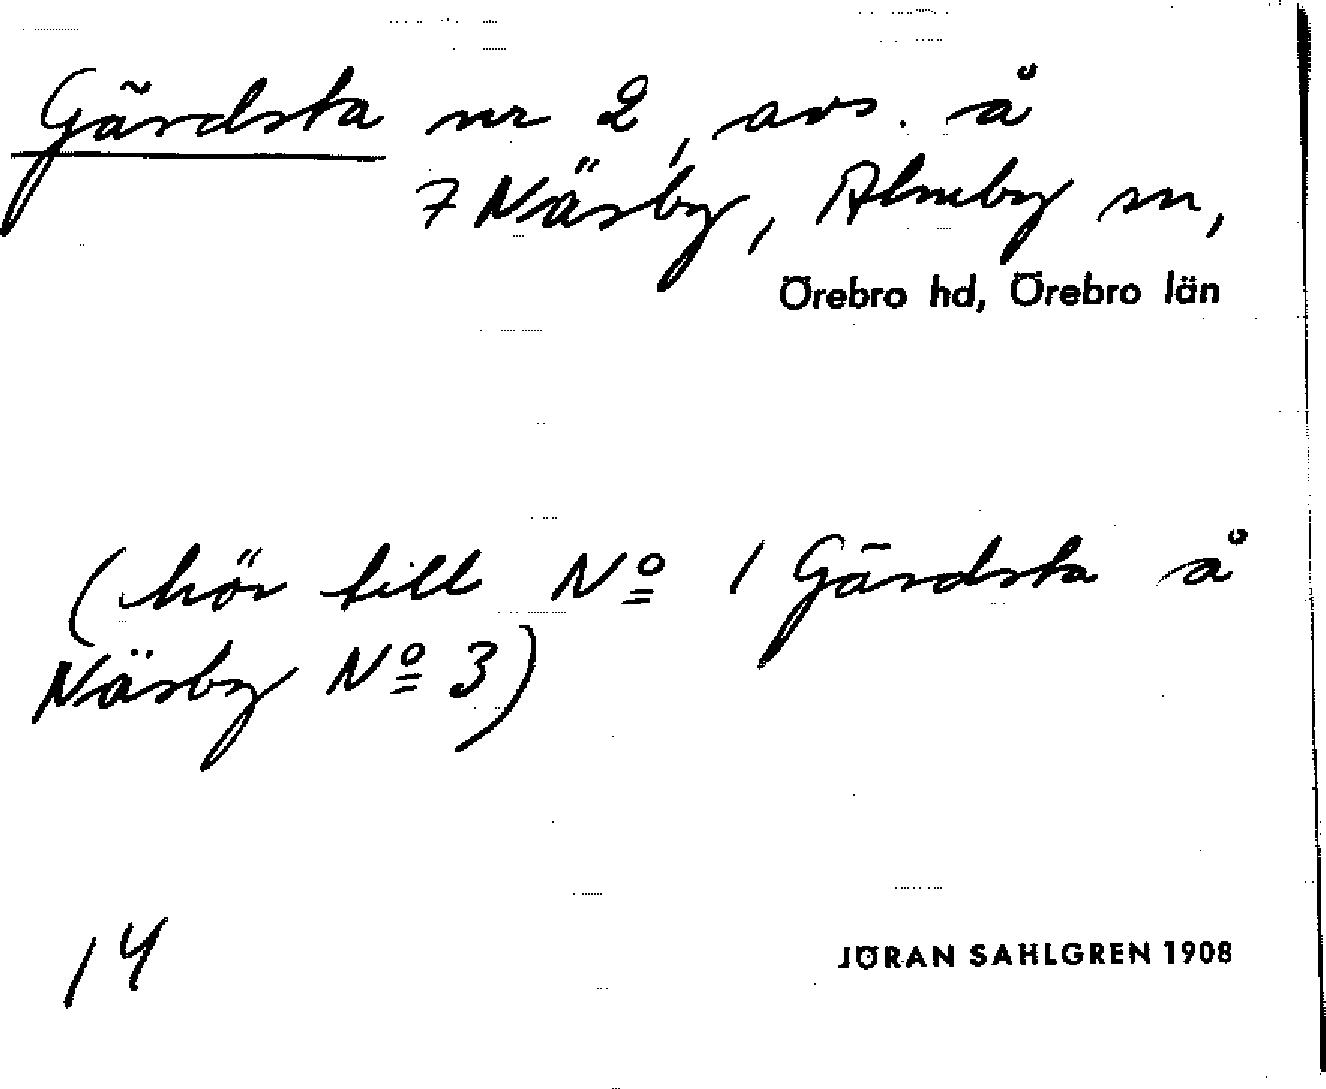 Gärdsta nr 2, avs. å
7 Näsby, Almby sn,
Örebro hd, Örebro län
(hör till Nº 1 Gärdsta å
Näsby Nº 3)
14
JÖRAN SAHLGREN 1908